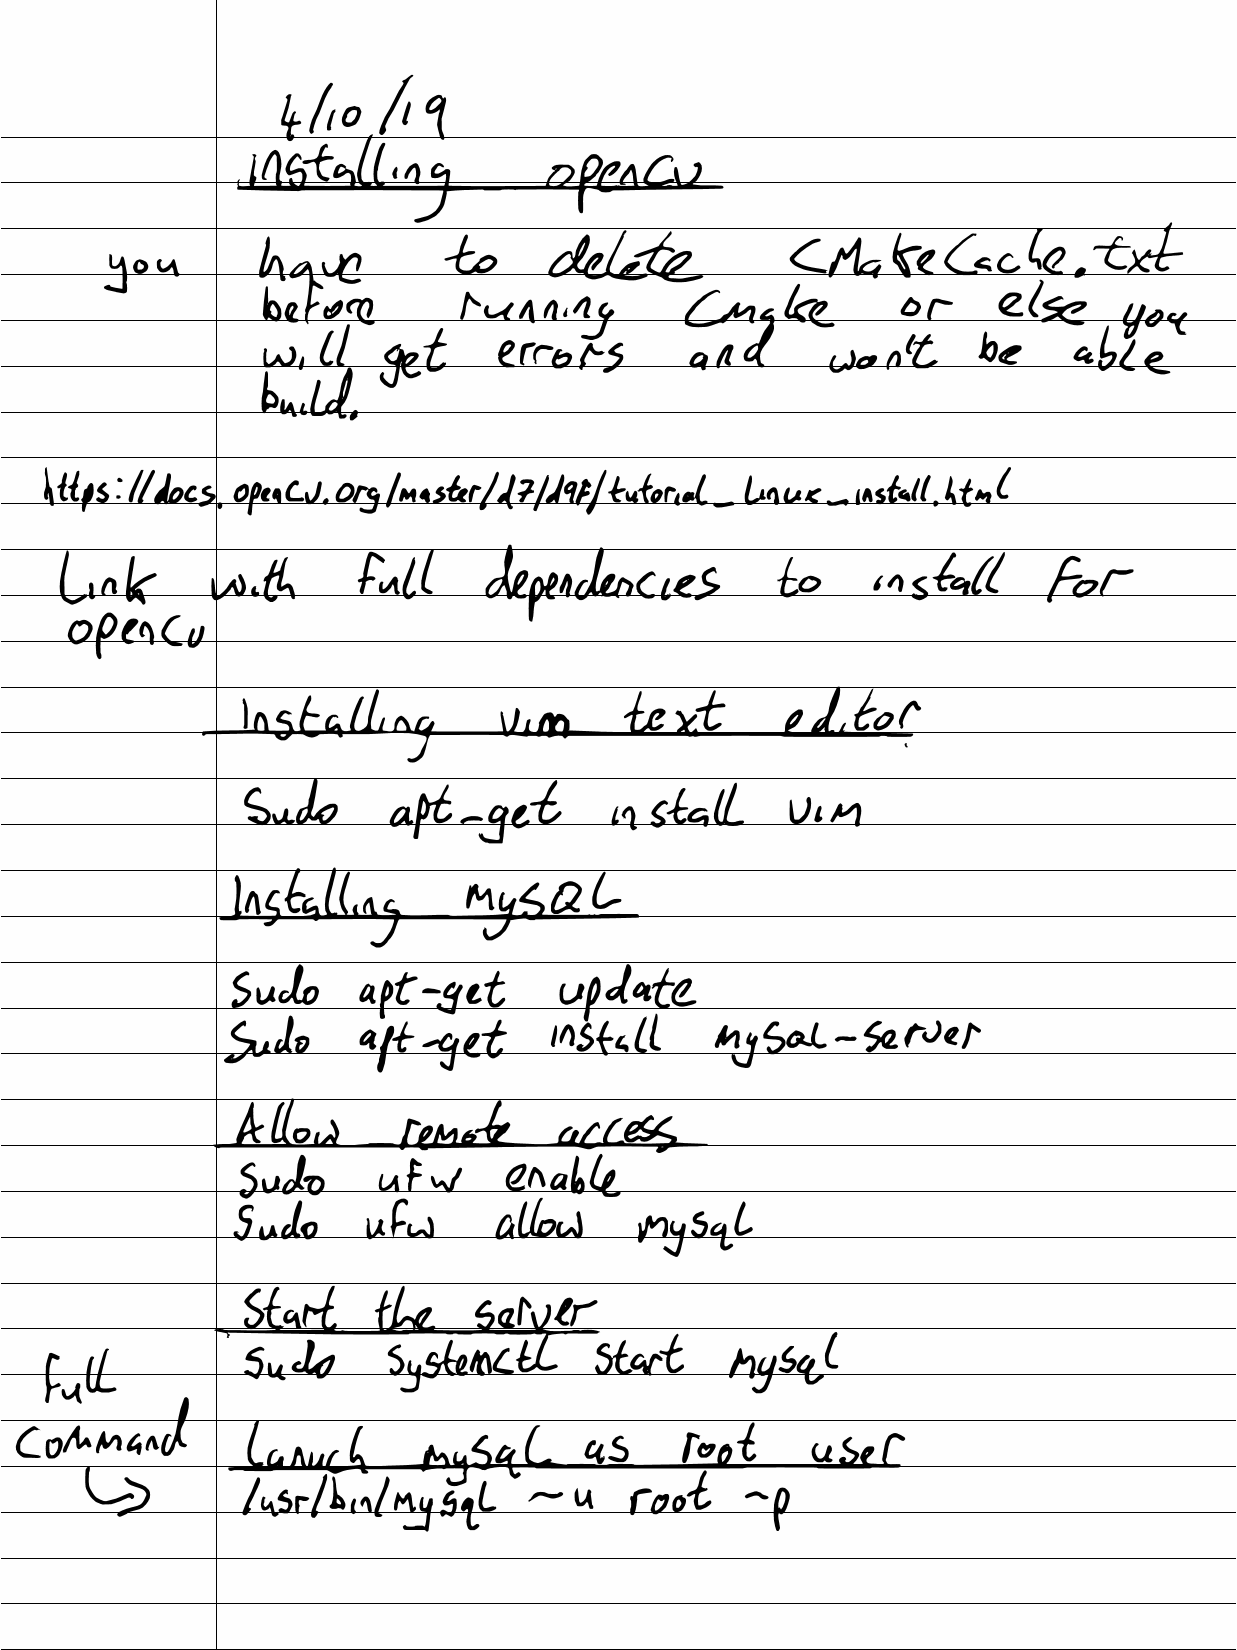 4/10/19
installing opencv
you have to delete CMakeCache.txt
before running Cmake or else you
will get errors and won't be able
build.
https://docs.opencv.org/master/d7/d9f/tutorial_linux_install.html
Link with full dependencies to install for
opencv
Installing vim text editor
Sudo apt-get install vim
Installing MySQL
Sudo apt-get update
Sudo apt-get install mysql-server
Allow remote access
Sudo ufw enable
Sudo ufw allow mysql
Start the server
Sudo systemctl start mysql
full
command
Lanuch mysql as root user
/usr/bin/mysql ~u root ~p